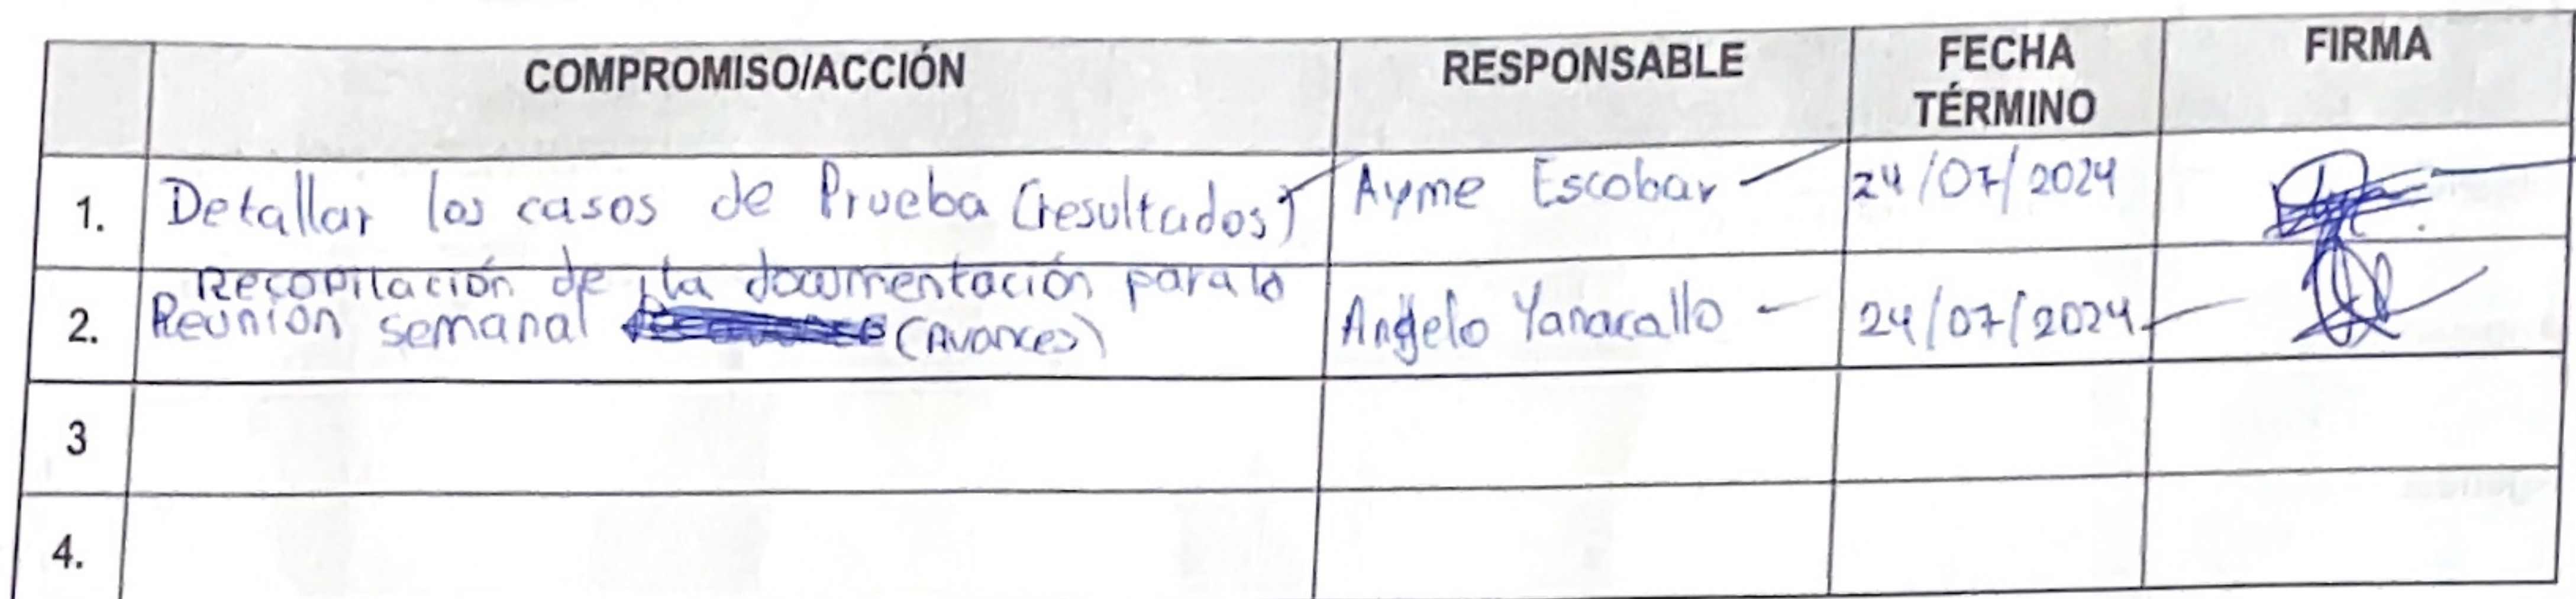 COMPROMISO/ACCIÓN RESPONSABLE FECHA TÉRMINO FIRMA
1. Detallar los casos de Prueba (resultados) Ayme Escobar 24/07/2024
2. Recopilación de la documentación para la
Reunión semanal (Avances) Angelo Yanacallo 24/07/2024
3
4.